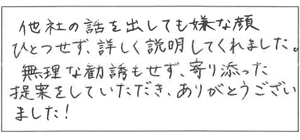 他社の話を出しても嫌な顔
ひとつせず、詳しく説明してくれました。
無理な勧誘もせず、寄り添った
提案をしていただき、ありがとうござい
ました!